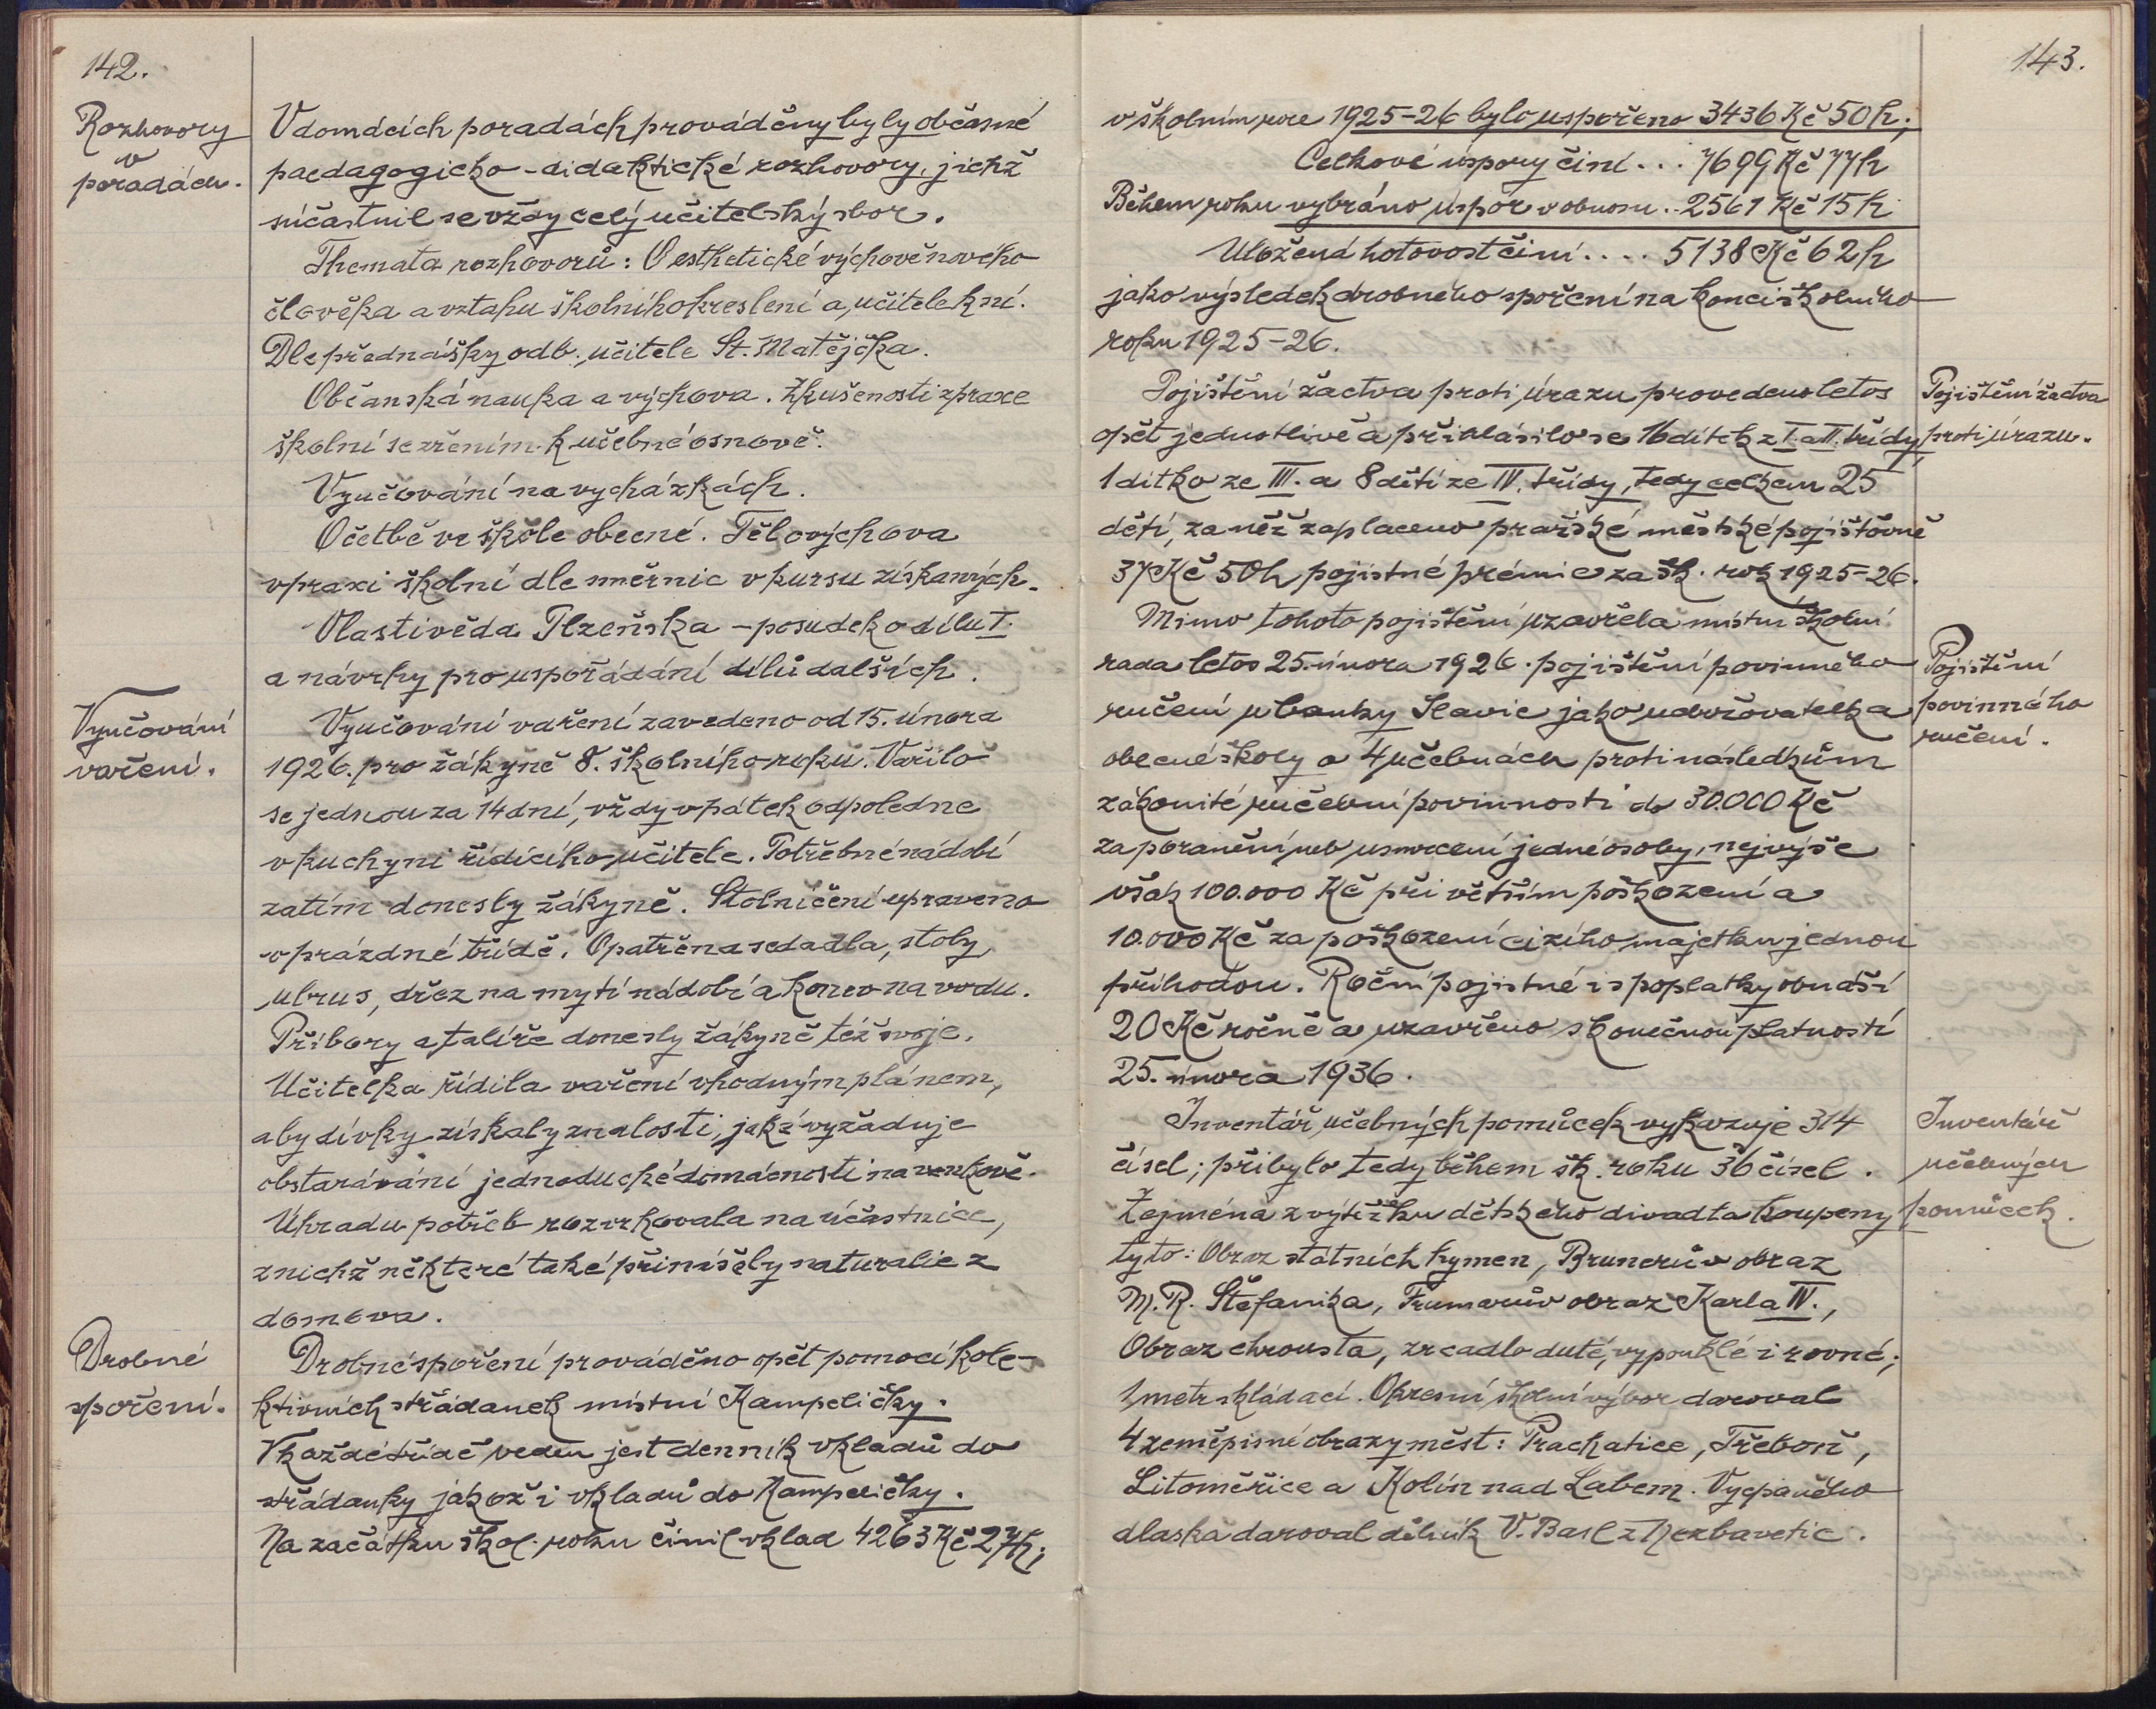 142.
Rozhovory
v
poradách.
V domácích poradách prováděny byly občasné
paedagogicko-didaktické rozhovory, jichž
súčastnil se vždy celý učitelský sbor.
Themata rozhovorů: O esthetické výchově nového
člověka a vztahu školního kreslení a učitele k ní.
Dle přednášky odb. učitele St. Matějčka.
Občanská nauka a výchova. Zkušenosti z praxe
školní se zřením k učebné osnově.
Vyučování na vycházkách.
O četbě ve škole obecné. Tělovýchova
v praxi školní dle směrnic v kursu získaných.
Vlastivěda Plzeňska – posudek o dílu I.
a návrhy pro uspořádání dílů dalších.
Vyučování
vaření.
Vyučování vaření zavedeno od 15. února
1926. pro žákyně 8. školního roku. Vařilo
se jednou za 14 dní, vždy v pátek odpoledne
v kuchyni řídícího učitele. Potřebné nádobí
zatím donesly žákyně. Stolničení upraveno
v prázdné třídě. Opatřena sedadla, stoly,
ubrus, dřez na mytí nádobí a konev na vodu.
Příbory a talíře donesly žákyně též svoje.
Učitelka řídila vaření vhodným plánem,
aby dívky získaly znalosti, jaké vyžaduje
obstarávání jednoduché domácnosti na venkově.
Úhradu potřeb rozvrhovala na účastnice,
z nichž některé také přinášely naturalie z
domova.
Drobné
spoření.
Drobné spoření prováděno opět pomocí kole-
ktivních střádanek místní Kampeličky.
V každé třídě veden jest denník vkladů do
střádanky jakož i vkladů do Kampeličky.
Na začátku škol. roku činil vklad 4263 Kč 27 h;
143.
v školním roce 1925-26 bylo uspořeno 3436 Kč 50 h;
Celkové úspory činí... 7699 Kč 77 h
Během roku vybráno úspor v obnosu.. 2561 Kč 15 h
Uložená hotovost činí.... 5138 Kč 62 h
jako výsledek drobného spoření na konci školního
roku 1925-26.
Pojištění žactva
proti úrazu.
Pojištění žactva proti úrazu provedeno letos
opět jednotlivě a přihlásilo se 16 dítek z I. a II. třídy,
1 dítko ze III. a 8 dětí ze IV. třídy, tedy celkem 25
dětí, za něž zaplaceno pražské městské pojišťovně
37 Kč 50 h pojistné prémie za šk. rok 1925-26.
Mimo tohoto pojištění uzavřela místní školní
Pojištění
povinného
ručení.
rada letos 25. února 1926. pojištění povinného
ručení u banky Slavie jako udržovatelka
obecné školy o 4 učebnách proti následkům
zákonité ručební povinnosti do 30.000 Kč
za poranění neb usmrcení jedné osoby, nejvýše
však 100.000 Kč při větším poškození a
10.000 Kč za poškození cizího majetku jednou
příhodou. Roční pojistné i s poplatky obnáší
20 Kč ročně a uzavřeno s konečnou platností
25. února 1936.
Inventář
učebných
pomůcek.
Inventář učebných pomůcek vykazuje 314
čísel; přibylo tedy během šk. roku 36 čísel.
Zejména z výtěžku dětského divadla koupeny
tyto: Obraz státních hymen, Brunerův obraz
M. R. Štefanika, obraz Karla IV.,
Obraz chrousta, zrcadlo duté, vypouklé i rovné;
1 metr skládací. Okresní školní výbor daroval
4 zeměpisné obrazy měst: Prachatice, Třeboň,
Litoměřice a Kolín nad Labem. Vycpaného
dlaska daroval dělník V. Basl z Nezbavětic.